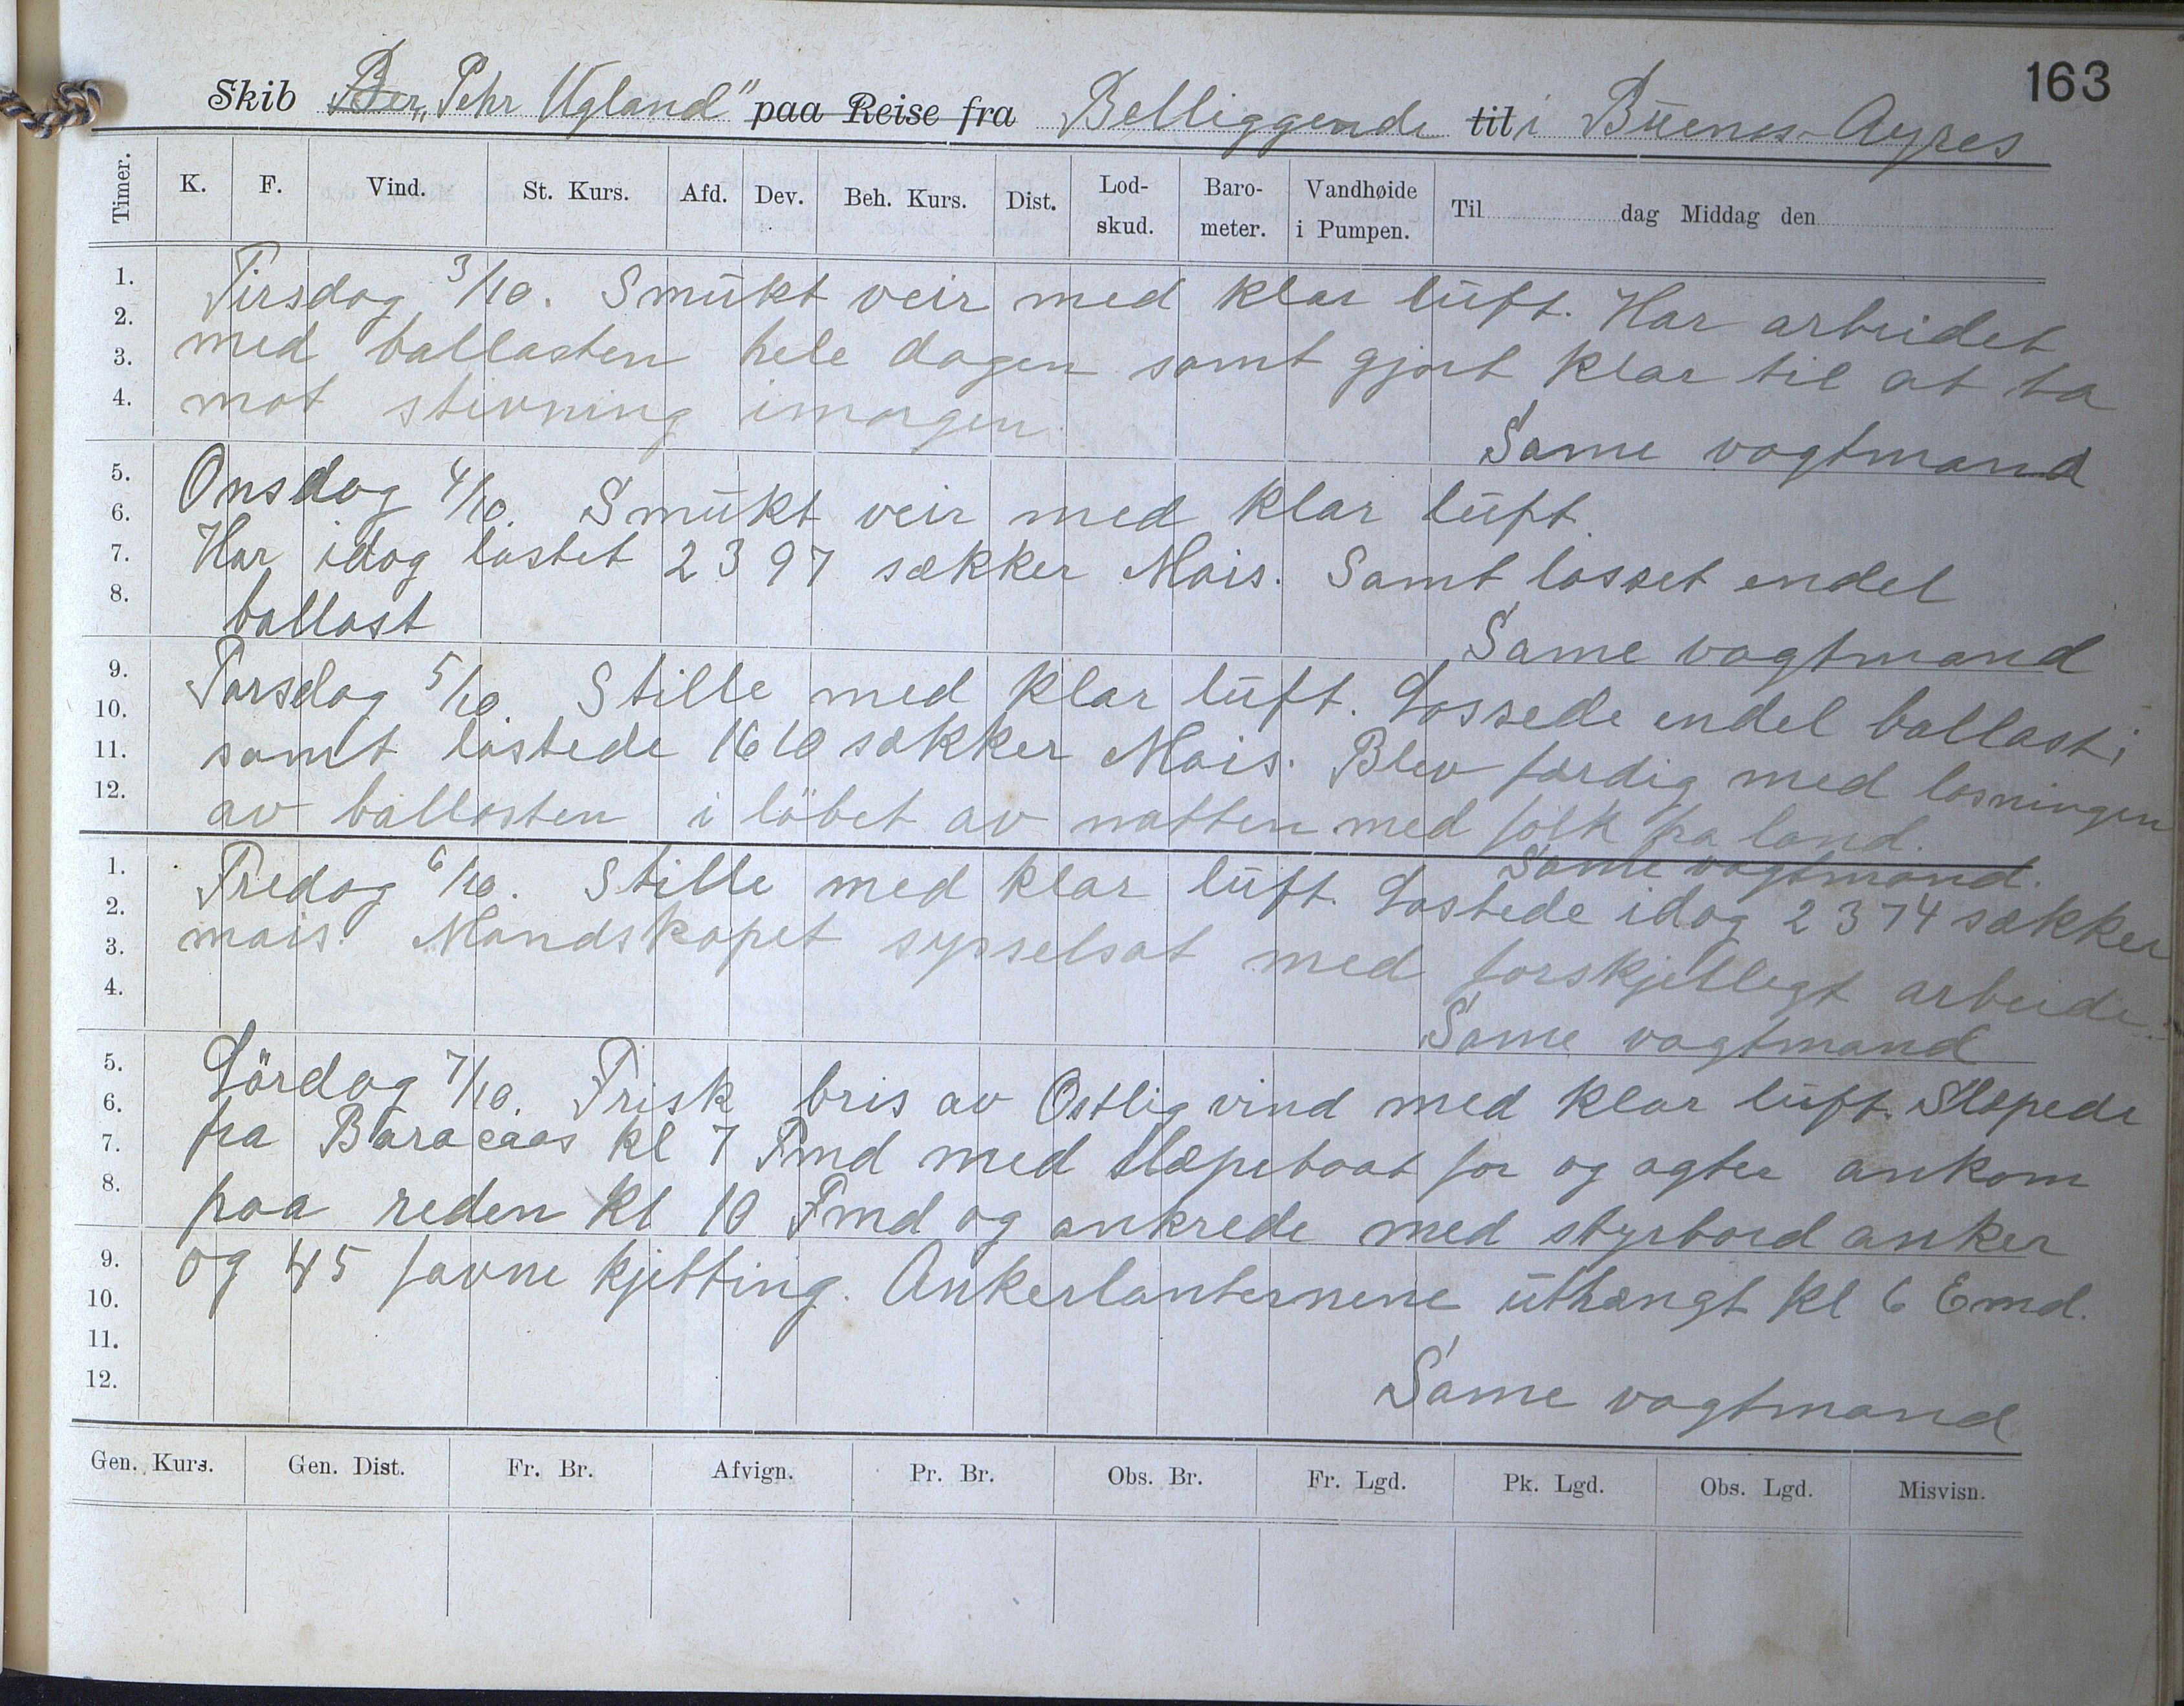 163
Skib ~~Ber~~ „Pehr Ugland" ~~paa Reise fra~~ Belliggende ~~til~~ i Büenos-Ayres
Timer. K. F. Vind. St. Kurs. Afd. Dev. Beh. Kurs. Dist. Lod-skud. Baro-meter. Vandhøide i Pumpen. Til dag Middag den
1. 2. 3. 4.
Tirsdag 3/10. Smükt veir med klar lüft. Har arbeidet
med ballasten hele dagen samt gjort klar til at ta
mot stivning imorgen
Same vagtmand
5. 6. 7. 8.
Onsdag 4/10. Smükt veir med klar lüft.
Har idag lastet 2397 sækker Mais. Samt losset endel
ballast
Same vagtmand
9. 10. 11. 12.
Torsdag 5/10. Stille med klar lüft. Lossede endel ballast i
samt lastede 1610 sækker Mais. Blev færdig med losningen
av ballasten i löbet av natten med folk fra land.
Same vagtmand.
1. 2. 3. 4.
Fredag 6/10. Stille med klar lüft. Lastede idag 2374 sækker
mais. Mandskapet sysselsat med forskjelligt arbeide.
Same vagtmand
5. 6. 7. 8.
Lördag 7/10. Frisk bris av Ostlig vind med klar lüft. Slæpede
fra Baracaas kl 7 Fmd med slæpebaat for og agter ankom
paa reden kl 10 Fmd og ankrede med styrbord anker
9. 10. 11. 12.
og 45 favne kjetting. Ankerlanternene üthængt kl 6 Emd.
Same vagtmand
Gen. Kurs. Gen. Dist. Fr. Br. Afvign. Pr. Br. Obs. Br. Fr. Lgd. Pk. Lgd. Obs. Lgd. Misvisn.